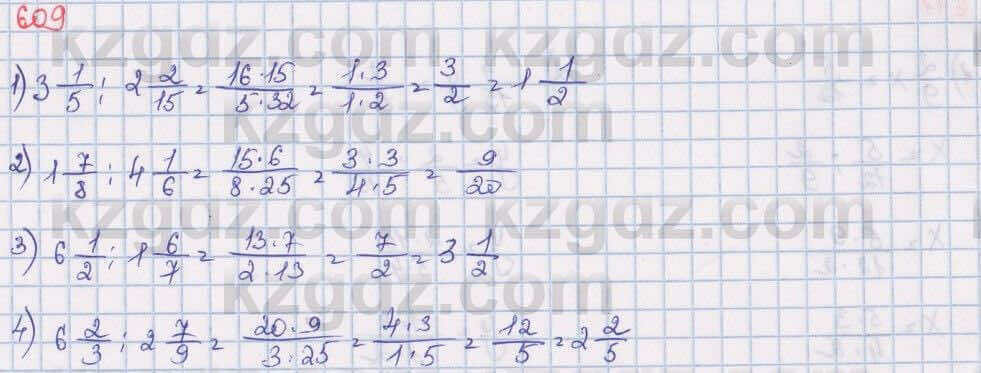 609
kzgdz.com kzgdz.com
1) 3 1/5 : 2 2/15 = 16·15/5·32 = 1·3/1·2 = 3/2 = 1 1/2
kzgdz.com
2) 1 7/8 : 4 1/6 = 15·6/8·25 = 3·3/4·5 = 9/20
kzgdz.com kzgdz.com
3) 6 1/2 : 1 6/7 = 13·7/2·13 = 7/2 = 3 1/2
kzgdz.com
4) 6 2/3 : 2 7/9 = 20·9/3·25 = 4·3/1·5 = 12/5 = 2 2/5
kzgdz.com kzgdz.com